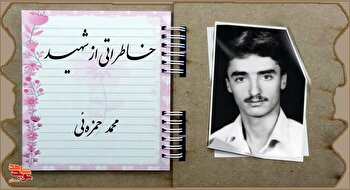 خاطراتی از شهید
محمد حمزه‌ئی